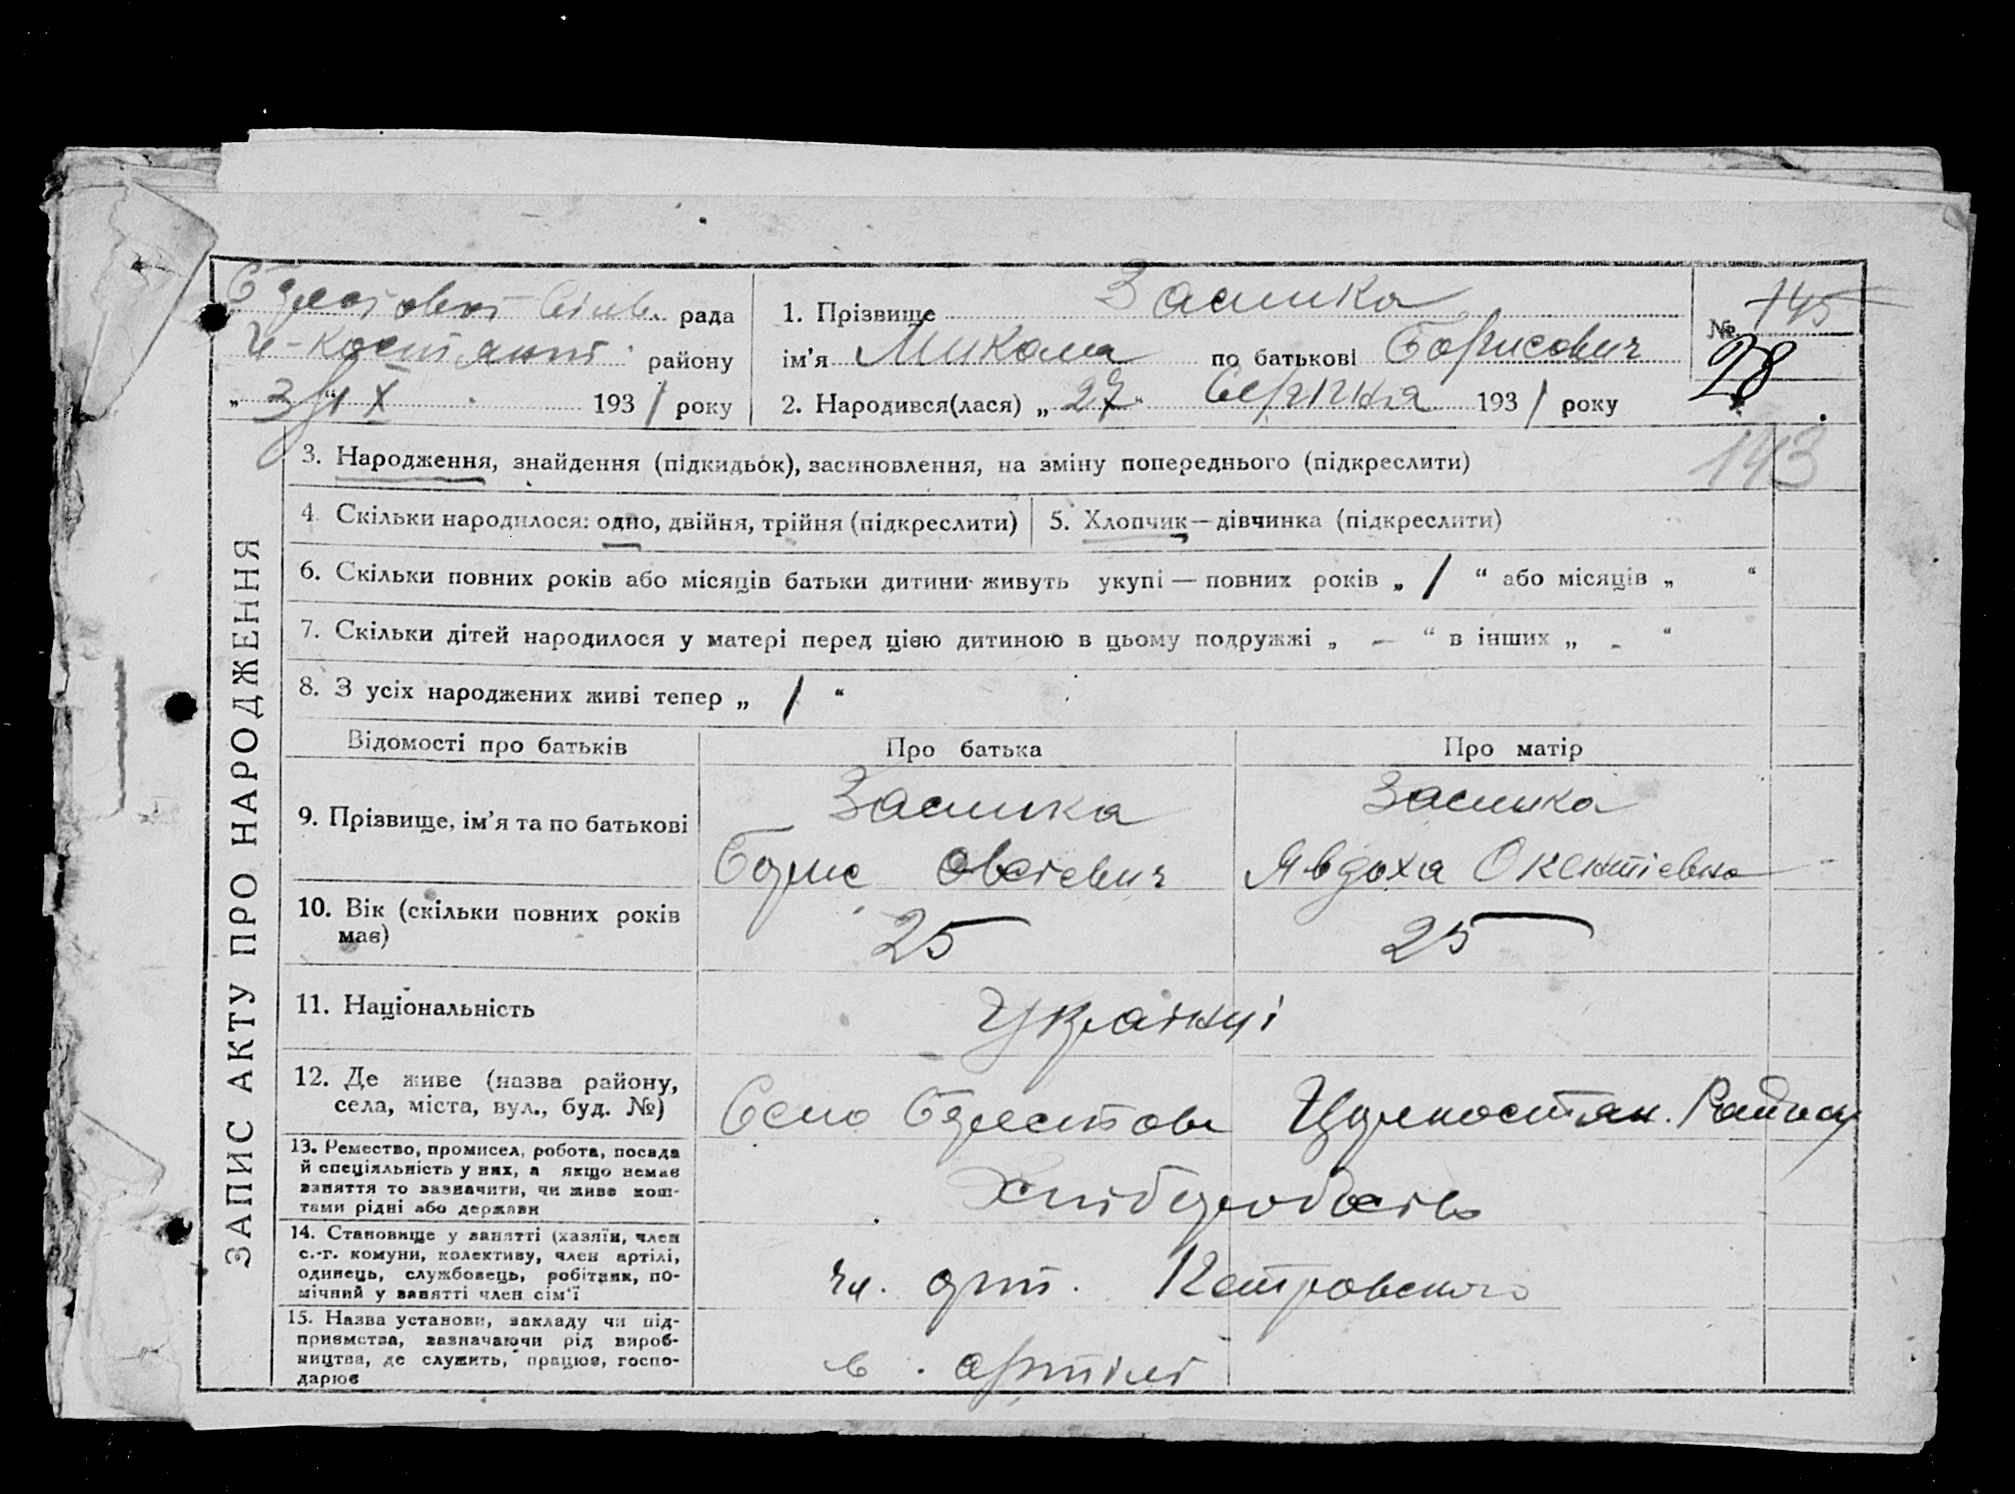 сільв. рада
району
„ 3 “ IX 1931 року
1. Прізвище Засипка
ім'я Микола по батькові Борисович
2. Народився(лася) „ 27 “ Серпня 1931 року
№ 145
28
143
ЗАПИС АКТУ ПРО НАРОДЖЕННЯ
3. Народження, знайдення (підкидьок), засиновлення, на зміну попереднього (підкреслити)
4. Скільки народилося: одно, двійня, трійня (підкреслити)
5. Хлопчик—дівчинка (підкреслити)
6. Скільки повних років або місяців батьки дитини живуть укупі — повних років „ 1 “ або місяців „ “
7. Скільки дітей народилося у матері перед цією дитиною в цьому подружжі „ — “ в інших „ - “
8. З усіх народжених живі тепер „ 1 “
Відомості про батьків
Про батька
Про матір
9. Прізвище, ім'я та по батькові
Засипка
Борис
Засипка
Явдоха
10. Вік (скільки повних років
має)
25
25
11. Національність
Українці
12. Де живе (назва району,
села, міста, вул., буд. №)
Село Району
13. Ремество, промисел, робота, посада
й спеціяльність у них, а якщо немає
заняття то зазначити, чи живе кош-
тами рідні або держави
Хліборобство
14. Становище у занятті (хазяїн, член
с.-г. комуни, колективу, член артілі,
одинець, службовець, робітник, по-
мічний у занятті член сім'ї
чл. арт. Петровского
15. Назва установи, закладу чи під-
приємства, зазначаючи рід вироб-
ництва, де служить, працює, госпо-
дарює
в . артілі